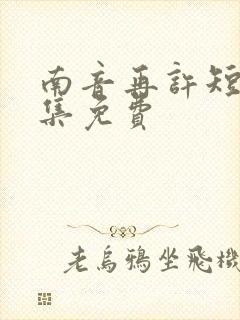 南音再許短
集免費
老烏鴉坐飛機